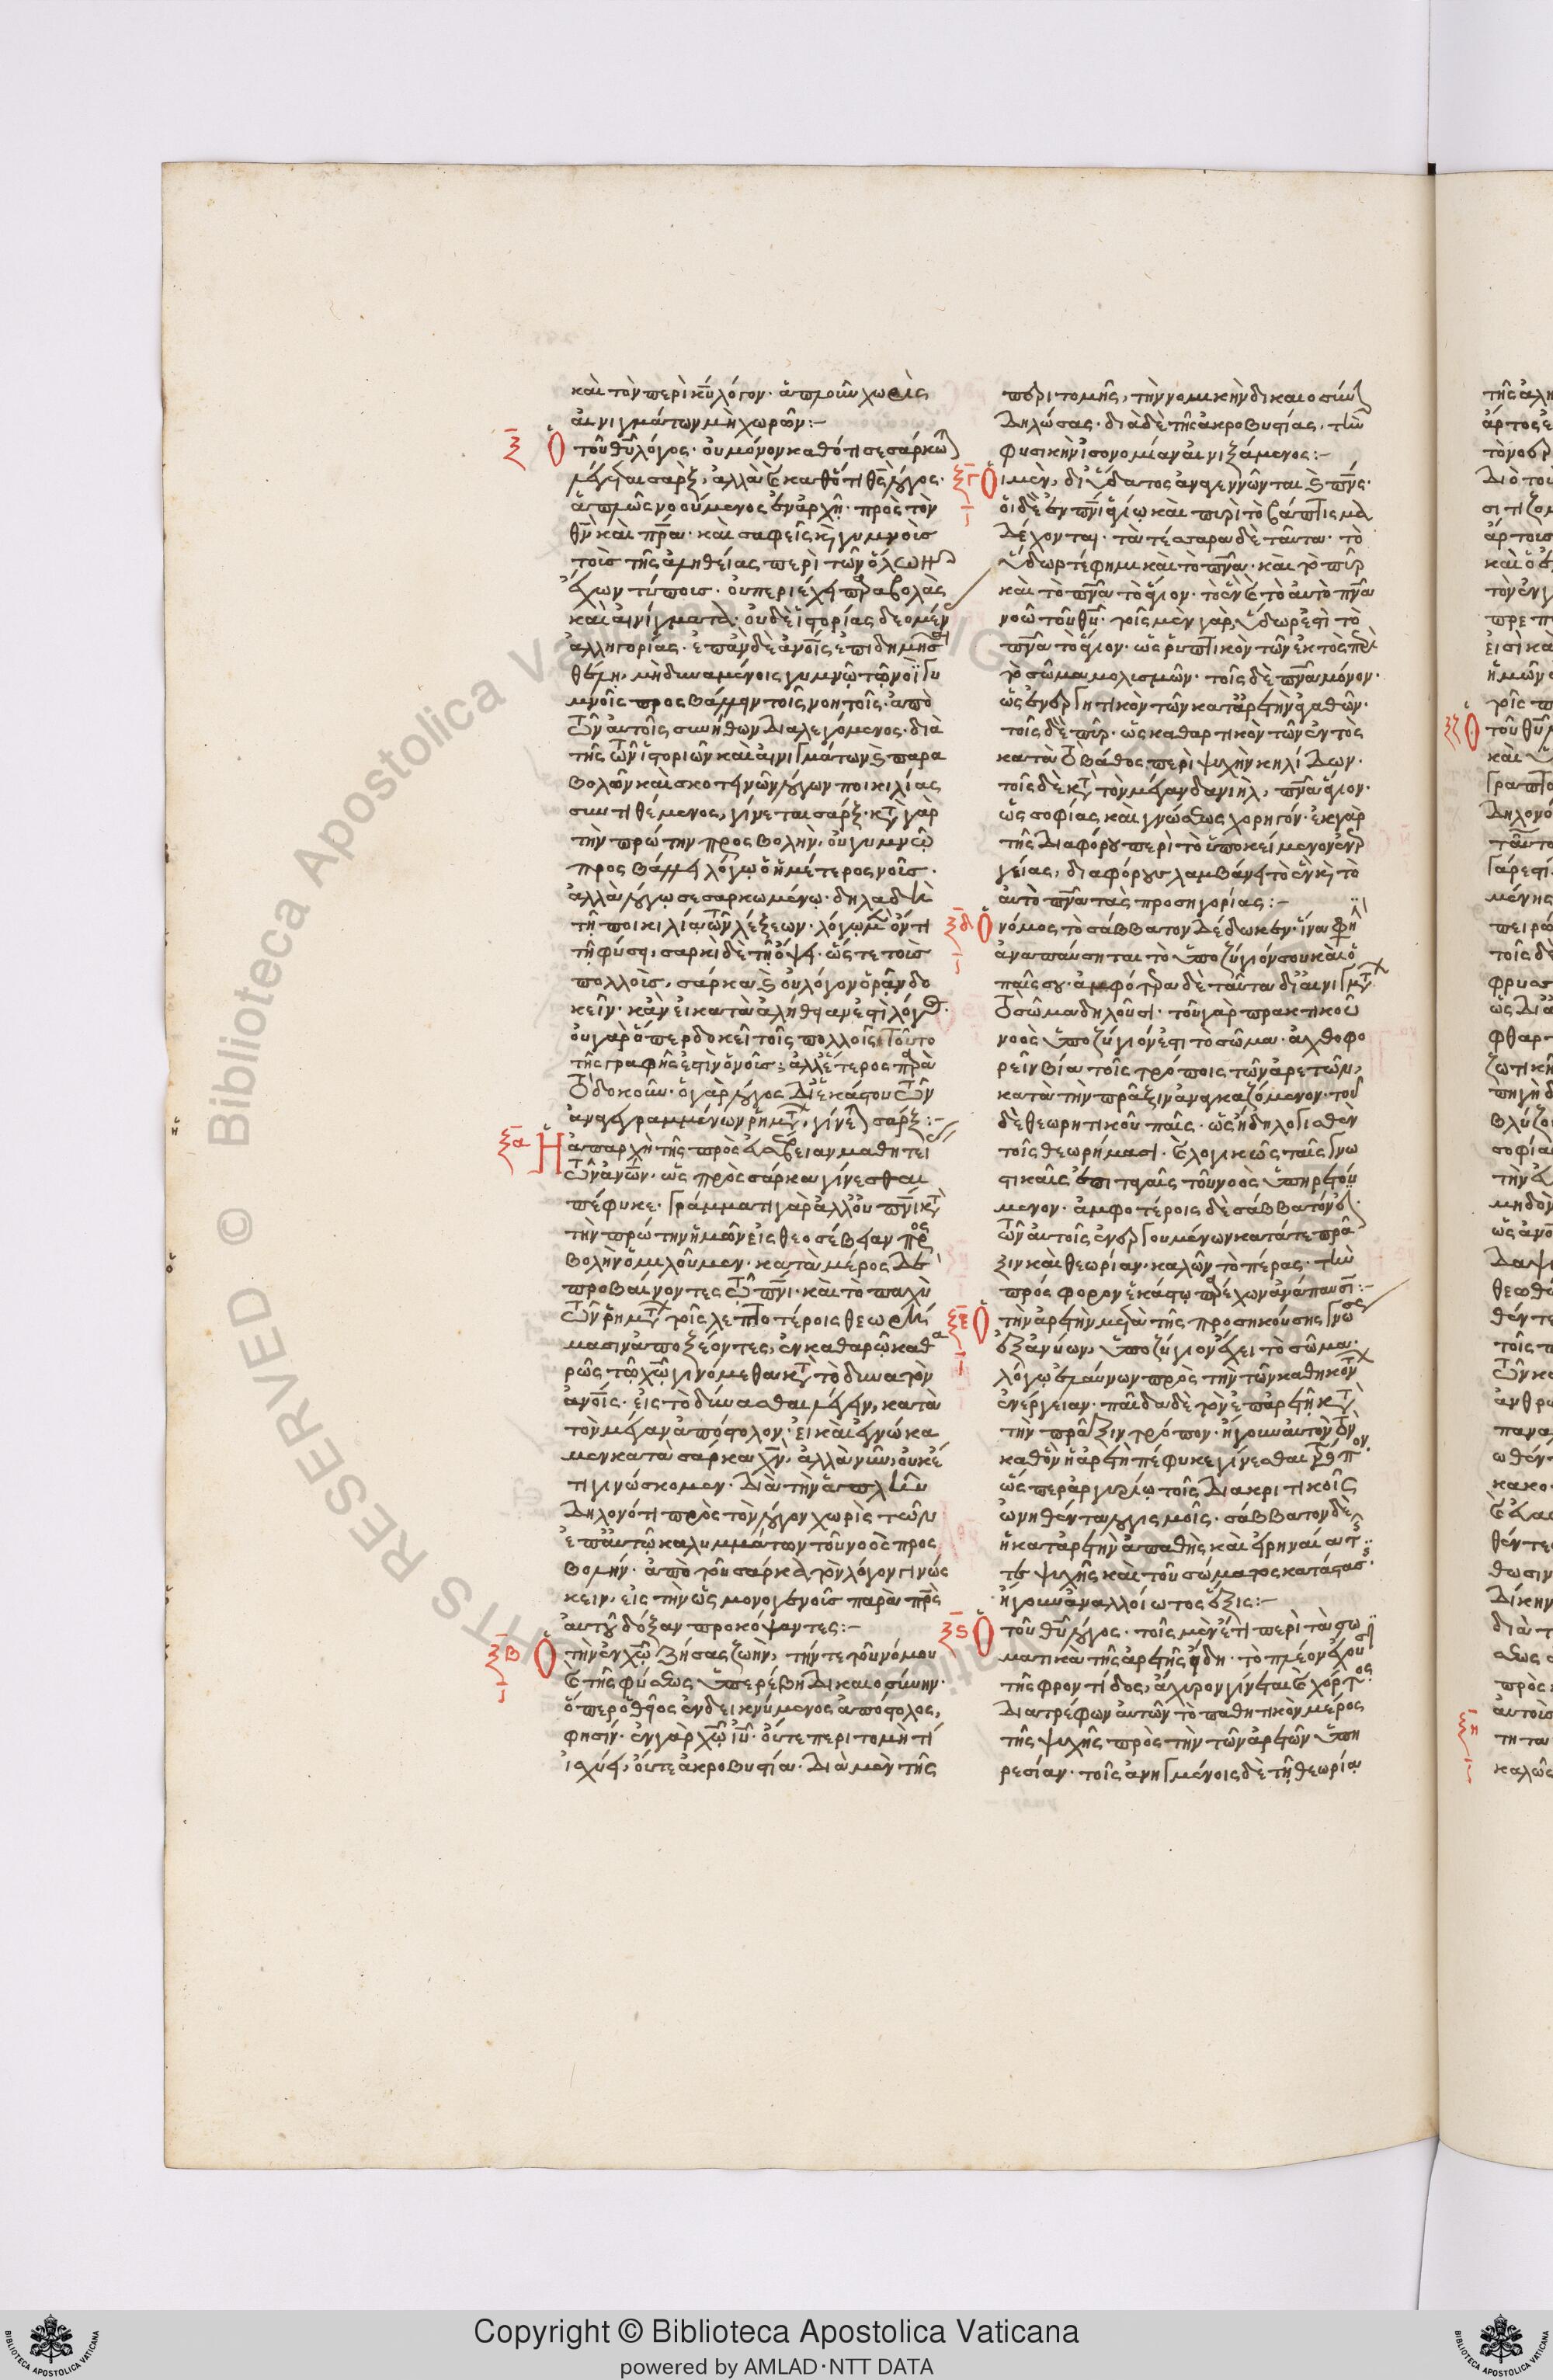 καὶ τὸν περὶ κῡ λόγον· ἁπλοῦν χωρὶς
αἰνιγμάτων μὴ χωρῶν:–
ξ Ὁ τοῦ θῡ λόγος· οὐ μόνον καθότι σεσάρκω
λέγεται σὰρξ, ἀλλὰ καὶ καθότι θς λόγος·
ἁπλῶς νοούμενος ἐν ἀρχῇ· πρὸς τὸν
θν καὶ πρα· καὶ σαφεῖς καὶ γυμνοὺς
τοὺς τῆς ἀληθείας περὶ τῶν ὅλων
ἔχων τύπους· οὐ περιέχει παραβολὰς
καὶ αἰνίγματα· οὐδὲ ἱστορίας δεομέν
ἀλληγορίας· ἐπὰν δὲ ἀνοις ἐπιδημήσῃ
μὴ δυναμένοις γυμνῷ τῷ νοῒ γυ
μνοῖς προσβάλλειν τοῖς νοητοῖς· ἀπὸ
τῶν αὐτοῖς συνήθων διαλεγόμενος· διὰ
τῆς τῶν ἱστοριῶν καὶ αἰνιγμάτων καὶ παρα
βολῶν καὶ σκοτεινῶν λόγων ποικιλίας
συντιθέμενος, γίνεται σάρξ· κτ γὰρ
τὴν πρώτην προσβολὴν, οὐ γυμνῷ
προσβάλλει λόγῳ ὁ ἡμέτερος νοῦς·
ἀλλὰ λόγῳ σεσαρκωμένῳ· δηλαδὴ
τῇ ποικιλίᾳ τῶν λέξεων· λόγῳ μὲν ὄντι
τῇ φύσει, σαρκὶ δὲ τῇ ὄψει· ὥστε τοὺς
πολλοὺς, σάρκα καὶ οὐ λόγον ὁρᾶν δο
κεῖν· κἂν εἰ κατὰ ἀλήθειαν ἐστὶ λόγος·
οὐ γὰρ ὅπερ δοκεῖ τοῖς πολλοῖς τοῦτο
τῆς γραφῆς ἐστὶν ὁ νοῦς· ἀλλ' ἕτερος παρὰ
τὸ δοκοῦν· ὁ γὰρ λόγος δι' ἑκάστου τῶν
ἀναγεγραμμένων ῥημτ, γίνετ σάρξ:–
ξα Ἡ ἀπαρχὴ τῆς πρὸς εὐσέβειαν μαθητεί
τῶν ἀνων· ὡς πρὸς σάρκα γίνεσθαι
πέφυκε· γράμματι γὰρ ἀλλ' οὐ πνι κτ
τὴν πρώτην ἡμῶν εἰς θεοσέβειαν προσ
βολὴν ὁμιλοῦμεν· κατὰ μέρος δὲ
προβαίνοντες τῷ πνι· καὶ τὸ παχὺ
τῶν ῥημτ τοῖς λεπτοτέροις θεωρή
μασιν ἀποξέοντες, ἐν καθαρῷ καθα
ρῶς τῷ χω γινόμεθα κτ τὸ δυνατὸν
ἀνοις· εἰς τὸ δύνασθαι λέγειν, κατὰ
τὸν μέγαν ἀπόστολον· εἰ καὶ ἐγνώκα
μεν κατὰ σάρκα χν, ἀλλὰ νῦν οὐκέ
τι γινώσκομεν· διὰ τὴν ἁπλῆν
δηλονότι πρὸς τὸν λόγον χωρὶς τῶν
ἐπ' αὐτῷ καλυμμάτων τοῦ νοὸς προσ
βολήν· ἀπὸ τοῦ σαρκὶ τὸν λόγον γινώσ
κειν, εἰς τὴν ὡς μονογενοῦς παρὰ πρς
αὐτοῦ δόξαν προκόψαντες:–
ξβ Ὁ τὴν ἐν χω ζήσας ζωὴν, τήν τε τοῦ νόμου
καὶ τῆς φύσεως ὑπερέβη δικαιοσύνην·
ὅπερ ὁ θεῖος ἐνδεικνύμενος ἀπόστολος,
φησίν· ἐν γὰρ χω ιυ· οὔτε περιτομή τι
ἰσχύει, οὔτε ἀκροβυστία· διὰ μὲν τῆς
περιτομῆς, τὴν νομικὴν δικαιοσύν
δηλώσας· διὰ δὲ τῆς ἀκροβυστίας, τὴν
φυσικὴν ἰσονομίαν αἰνιξάμενος:–
ξγ Οἱ μὲν, δι' ὕδατος ἀναγεννῶνται καὶ πνς·
οἱ δὲ ἐν πνι ἁγίῳ καὶ πυρὶ τὸ βάπτισμα
δέχονται· τὰ τέσσαρα δὲ ταῦτα· τὸ
ὕδωρ τέ φημι καὶ τὸ πνα· καὶ τὸ πῦρ
καὶ τὸ πνα τὸ ἅγιον· τὸ ἓν καὶ τὸ αὐτὸ πνα
νοῶ τοῦ θυ· τοῖς μὲν γὰρ, ὕδωρ ἐστὶ τὸ
πνα τὸ ἅγιον· ὡς ῥυπτικὸν τῶν ἐκτὸς περὶ
τὸ σῶμα μολυσμῶν· τοῖς δὲ πνα μόνον·
ὡς ἐνεργητικὸν τῶν κατ' ἀρετὴν ἀγαθῶν·
τοῖς δὲ πῦρ· ὡς καθαρτικὸν τῶν ἐντὸς
κατὰ τὸ βάθος περὶ ψυχὴν κηλίδων·
τοῖς δὲ κτ τὸν μέγαν δανιὴλ, πνα ἅγιον·
ὡς σοφίας καὶ γνώσεως χορηγόν· ἐκ γὰρ
τῆς διαφόρου περὶ τὸ ὑποκείμενον ἐνερ
γείας, διαφόρους λαμβάνει τὸ ἓν καὶ τὸ
αὐτὸ πνα τὰς προσηγορίας:–
ξδ Ὁ νόμος, τὸ σάββατον δέδωκεν· ἵνα φη
ἀναπαύσηται τὸ ὑποζύγιόν σου καὶ ὁ
παῖς σου· ἀμφότερα δὲ ταῦτα δι' αἰνιγμτ
τὸ σῶμα δηλοῦσι· τοῦ γὰρ πρακτικοῦ
νοὸς ὑποζύγιόν ἐστι τὸ σῶμα· ἀχθοφο
ρεῖν βίᾳ τοῖς τρόποις τῶν ἀρετῶν,
κατὰ τὴν πρᾶξιν ἀναγκαζόμενον· τοῦ
δὲ θεωρητικοῦ παῖς· ὡς ἤδη λογισθὲν
τοῖς θεωρήμασι· καὶ λογικῶς ταῖς γνω
στικαῖς ἐπιταγαῖς τοῦ νοὸς ὑπηρετού
μενον· ἀμφοτέροις δὲ σάββατόν
τῶν αὐτοῖς ἐνεργουμένων κατά τε πρᾶ
ξιν καὶ θεωρίαν· καλῶν τὸ πέρας· τὴν
πρόσφορον ἑκάστῳ παρέχων ἀνάπαυσιν:–
ξε Ὁ τὴν ἀρετὴν μετὰ τῆς προσηκούσης γνώσε
ἐξανύων, ὑποζύγιον ἔχει τὸ σῶμα·
λόγῳ ἐλαύνων πρὸς τὴν τῶν καθηκόντ
ἐνέργειαν· παῖδα δὲ τὸν ἐπ' ἀρετῇ κτ
τὴν πρᾶξιν τρόπον· ἤγουν αὐτὸν τὸν
καθ' ὃν ἡ ἀρετὴ πέφυκε γίνεσθαι τρόπον·
ὥσπερ ἀργυρίῳ τοῖς διακριτικοῖς
ὠνηθέντα λογισμοῖς· σάββατον δὲ
ἡ κατ' ἀρετὴν ἀπαθὴς καὶ εἰρηναία
τε ψυχῆς καὶ τοῦ σώματος κατάστασ·
ἤγουν ἀναλλοίωτος ἕξις:–
ξϛ Ὁ τοῦ θυ λόγος· τοῖς μὲν ἔτι περὶ τὰ σω
ματικὰ τῆς ἀρετῆς εἴδη· τὸ πλέον ἔχουσι
τῆς φροντίδος, ἄχυρον γίνεται καὶ χόρτος
διατρέφων αὐτῶν τὸ παθητικὸν μέρος
τῆς ψυχῆς πρὸς τὴν τῶν ἀρετῶν ὑπη
ρεσίαν· τοῖς ἀνηγμένοις δὲ τῇ θεωρίᾳ
© Biblioteca Apostolica Vaticana
Copyright © Biblioteca Apostolica Vaticana
powered by AMLAD·NTT DATA